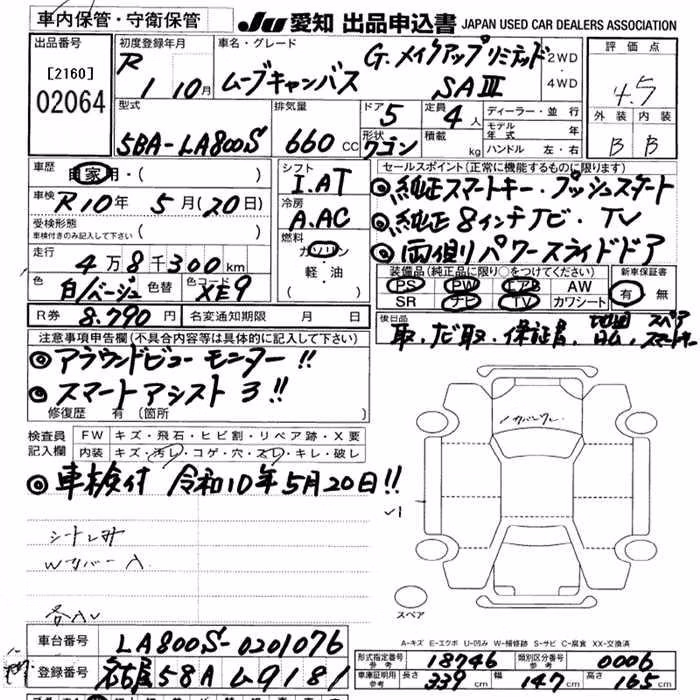 車内保管・守衛保管
JU 愛知 出品申込書 JAPAN USED CAR DEALERS ASSOCIATION
出品番号 [2160] 02064
初度登録年月 R 1 10月
車名・グレード ムーブキャンバス G.メイクアップリミテッド SAⅢ
2WD・4WD
評価点 4.5
外装 内装
B B
型式 5BA-LA800S
排気量 660 CC
ドア 5
形状 ワゴン
定員 4人
積載 kg
ディーラー・並行
モデル年式 年
ハンドル 左・右
車歴 自家用・( )
車検 R10年 5月(20日)
受検形態 車検付きのみ記入して下さい ( )
走行 4万8千300km
色 白/ベージュ 色替 色コード XE9
R券 8.790円 名変通知期限 月 日
シフト I.AT
冷房 A.AC
燃料 ガソリン・軽・油
セールスポイント(正常に機能するものに限ります)
◎純正スマートキー・プッシュスタート
◎純正8インチナビ・TV
◎両側パワースライドドア
装備品(純正品に限り○をつけてください)
PS PW エアB AW
SR ナビ TV カワシート
新車保証書 有 無
後日品 取.ナビ取.保証書. スペアスマートキー
注意事項申告欄(不具合内容等は具体的に記入して下さい)
◎アラウンドビューモニター!!
◎スマートアシスト3!!
修復歴 有(箇所 )
検査員記入欄
FW キズ・飛石・ヒビ割・リペア跡・X要
内装 キズ・汚レ・コゲ・穴・スレ・キレ・破レ
◎車検付 令和10年5月20日!!
Wカバー入
スペア
A-キズ E-エクボ U-凹み W-補修跡 S-サビ C-腐食 XX-交換済
車台番号 LA800S-0201076
登録番号 名古屋 58A ム9181
形式指定番号 参考 18746 類別区分番号 参考 0006
車庫証明用 参考 長さ 339cm 幅 147cm 高さ 165cm